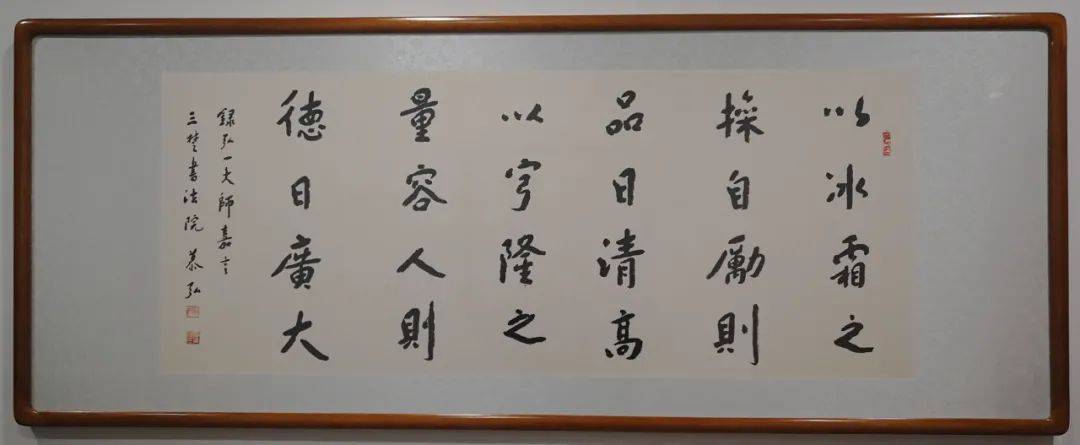 以冰霜之
操自勵則
品日清高
以穹隆之
量容人則
德日廣大
録弘一大師嘉言
三楚書法院 慕弘